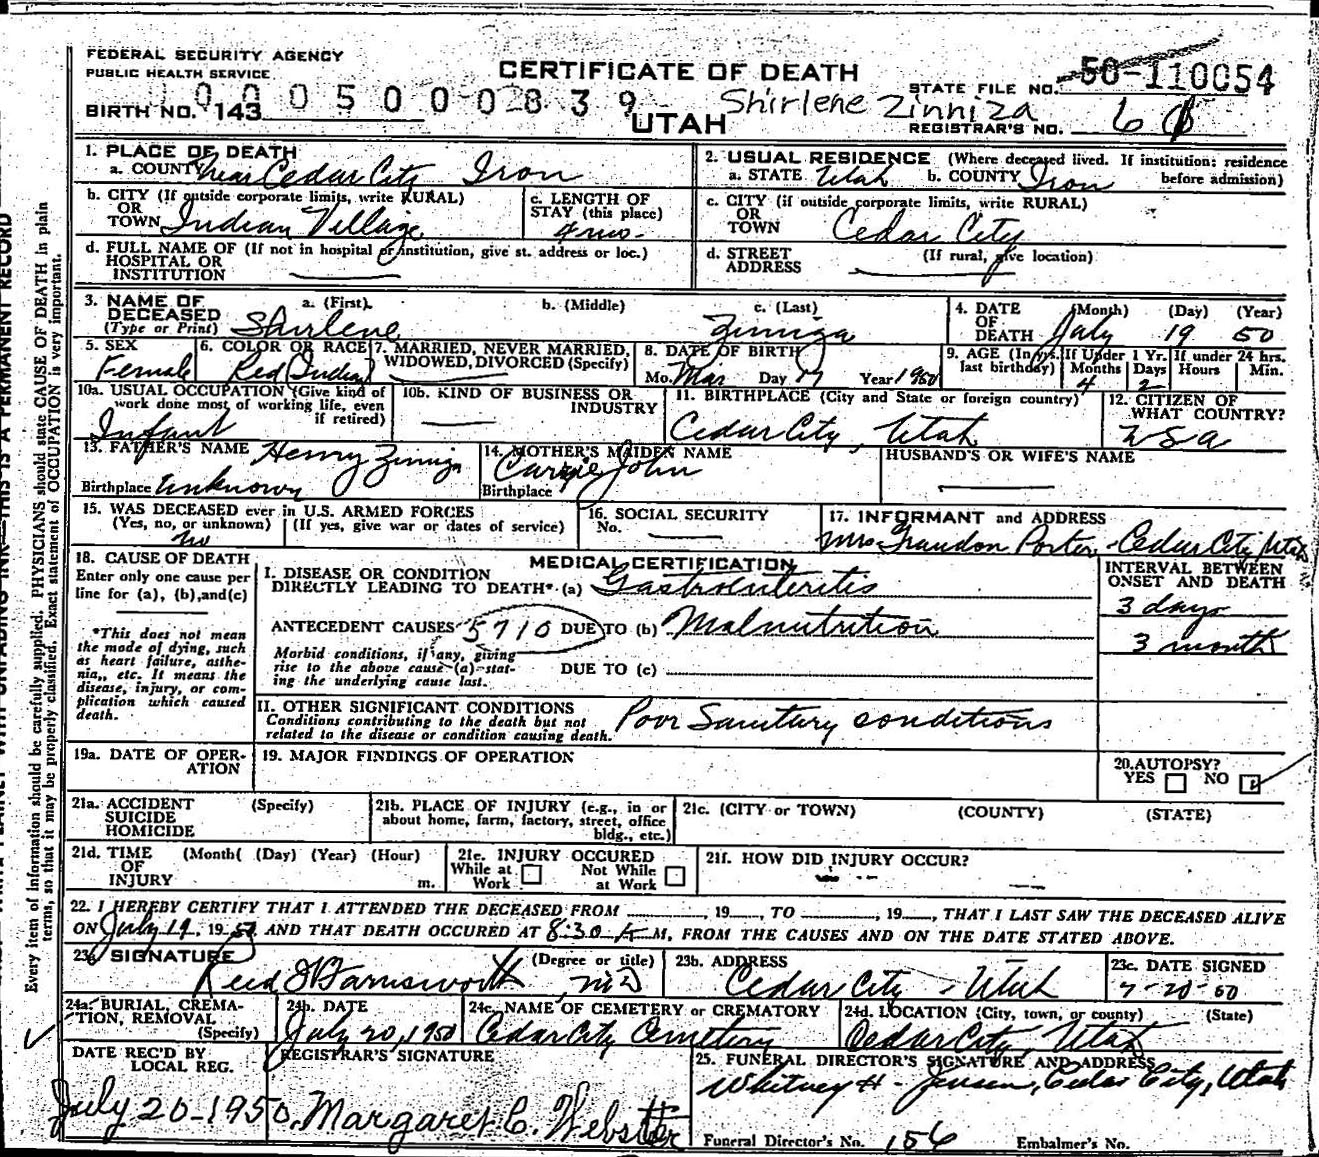 FEDERAL SECURITY AGENCY
PUBLIC HEALTH SERVICE
CERTIFICATE OF DEATH
UTAH
STATE FILE NO. 50-110054
BIRTH NO. 143
0005000839
Shirlene Zinniza
REGISTRAR'S NO. 6
1. PLACE OF DEATH
a. COUNTY near Cedar City Iron
2. USUAL RESIDENCE (Where deceased lived. If institution: residence before admission)
a. STATE Utah b. COUNTY Iron
b. CITY (If outside corporate limits, write RURAL) OR TOWN Indian Village
c. LENGTH OF STAY (this place) 4 mo.
c. CITY (if outside corporate limits, write RURAL) OR TOWN Cedar City
d. FULL NAME OF (If not in hospital or institution, give st. address or loc.) HOSPITAL OR INSTITUTION
d. STREET ADDRESS (If rural, give location)
3. NAME OF DECEASED (Type or Print)
a. (First) Shirlene
b. (Middle)
c. (Last) Zuniga
4. DATE OF DEATH (Month) (Day) (Year) July 19 50
5. SEX Female
6. COLOR OR RACE Red (Indian)
7. MARRIED, NEVER MARRIED, WIDOWED, DIVORCED (Specify)
8. DATE OF BIRTH Mo. Mar Day 17 Year 1950
9. AGE (In yrs. last birthday) If Under 1 Yr. Months 4 Days 2 If under 24 hrs. Hours Min.
10a. USUAL OCCUPATION (Give kind of work done most of working life, even if retired) Infant
10b. KIND OF BUSINESS OR INDUSTRY
11. BIRTHPLACE (City and State or foreign country) Cedar City, Utah
12. CITIZEN OF WHAT COUNTRY? USA
13. FATHER'S NAME Henry Zuniga
Birthplace Unknown
14. MOTHER'S MAIDEN NAME Carrie John
Birthplace
HUSBAND'S OR WIFE'S NAME
15. WAS DECEASED ever in U.S. ARMED FORCES (Yes, no, or unknown) (If yes, give war or dates of service) no
16. SOCIAL SECURITY No.
17. INFORMANT and ADDRESS Mrs Grandon Porter - Cedar City, Utah
18. CAUSE OF DEATH
Enter only one cause per line for (a), (b), and (c)
*This does not mean the mode of dying, such as heart failure, asthenia, etc. It means the disease, injury, or complication which caused death.
MEDICAL CERTIFICATION
I. DISEASE OR CONDITION DIRECTLY LEADING TO DEATH* (a) Gastroenteritis
ANTECEDENT CAUSES 5710 DUE TO (b) Malnutrition
Morbid conditions, if any, giving rise to the above cause (a) stating the underlying cause last.
DUE TO (c)
INTERVAL BETWEEN ONSET AND DEATH
3 days
3 month
II. OTHER SIGNIFICANT CONDITIONS
Conditions contributing to the death but not related to the disease or condition causing death. Poor Sanitary conditions
19a. DATE OF OPERATION
19. MAJOR FINDINGS OF OPERATION
20. AUTOPSY? YES NO
21a. ACCIDENT SUICIDE HOMICIDE (Specify)
21b. PLACE OF INJURY (e.g., in or about home, farm, factory, street, office bldg., etc.)
21c. (CITY or TOWN) (COUNTY) (STATE)
21d. TIME OF INJURY (Month( (Day) (Year) (Hour) m.
21e. INJURY OCCURED While at Work Not While at Work
21f. HOW DID INJURY OCCUR?
22. I HEREBY CERTIFY THAT I ATTENDED THE DECEASED FROM , 19 , TO , 19 , THAT I LAST SAW THE DECEASED ALIVE
ON July 19, 1950 AND THAT DEATH OCCURED AT 8:30 M, FROM THE CAUSES AND ON THE DATE STATED ABOVE.
23a. SIGNATURE (Degree or title) Reed Farnsworth, MD
23b. ADDRESS Cedar City - Utah
23c. DATE SIGNED 7-20-50
24a. BURIAL, CREMATION, REMOVAL (Specify)
24b. DATE July 20, 1950
24c. NAME OF CEMETERY or CREMATORY Cedar City Cemetery
24d. LOCATION (City, town, or county) (State) Cedar City, Utah
DATE REC'D BY LOCAL REG. July 20-1950
REGISTRAR'S SIGNATURE Margaret C. Webster
25. FUNERAL DIRECTOR'S SIGNATURE AND ADDRESS Whitney H. Jensen, Cedar City, Utah
Funeral Director's No. 156 Embalmer's No.
Every item of information should be carefully supplied. PHYSICIANS should state CAUSE OF DEATH in plain
terms, so that it may be properly classified. Exact statement of OCCUPATION is very important.
THIS IS A PERMANENT RECORD